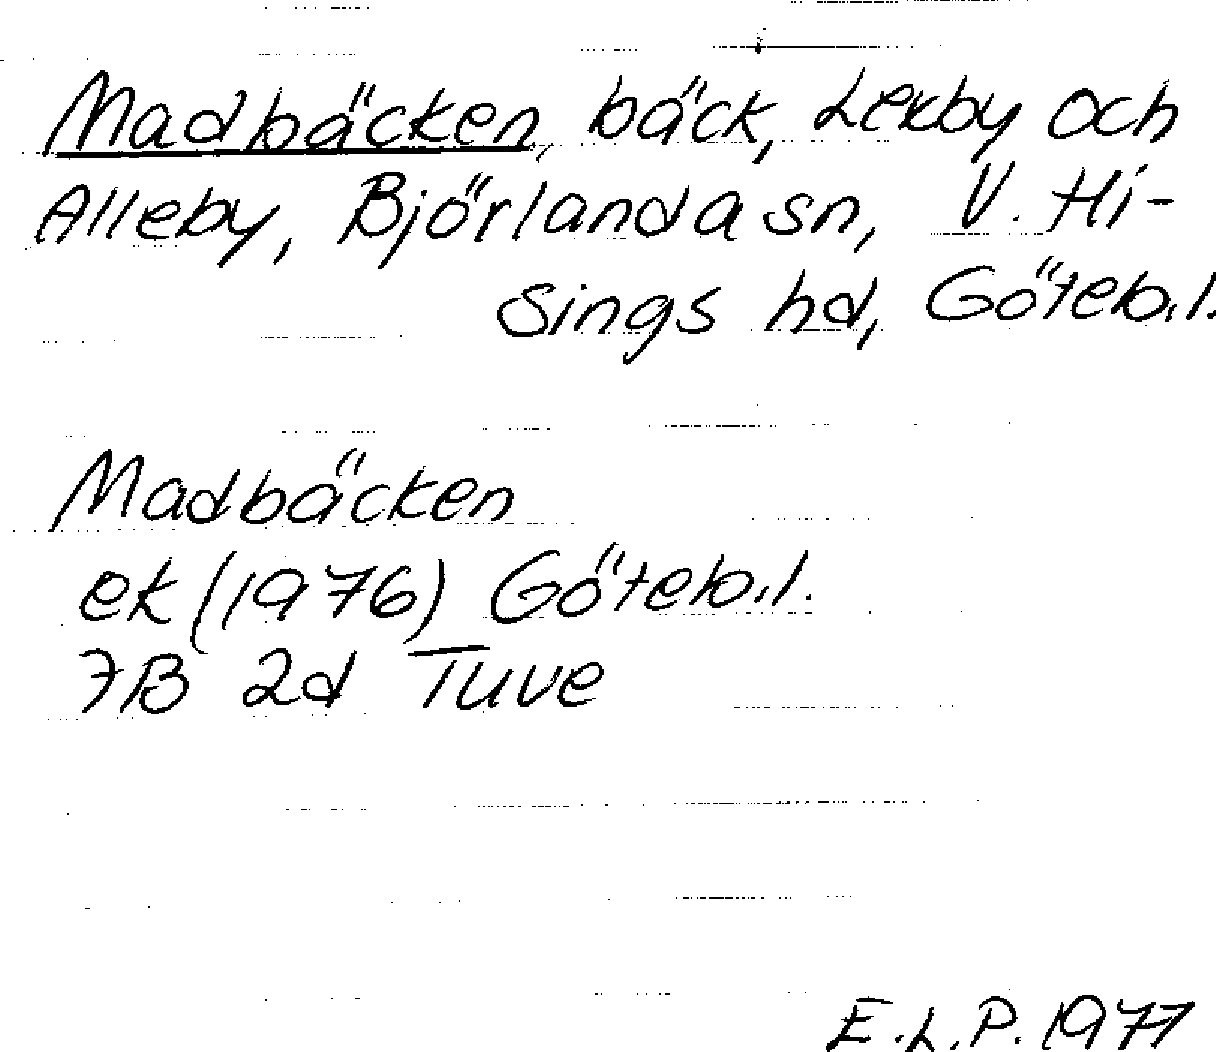 Madbäcken, bäck, Lexby och
Alleby, Björlanda sn, V. Hi-
sings hd, Göteb.l.
Madbäcken
ek (1976) Göteb.l.
7B 2d Tuve
E.L.P. 1977